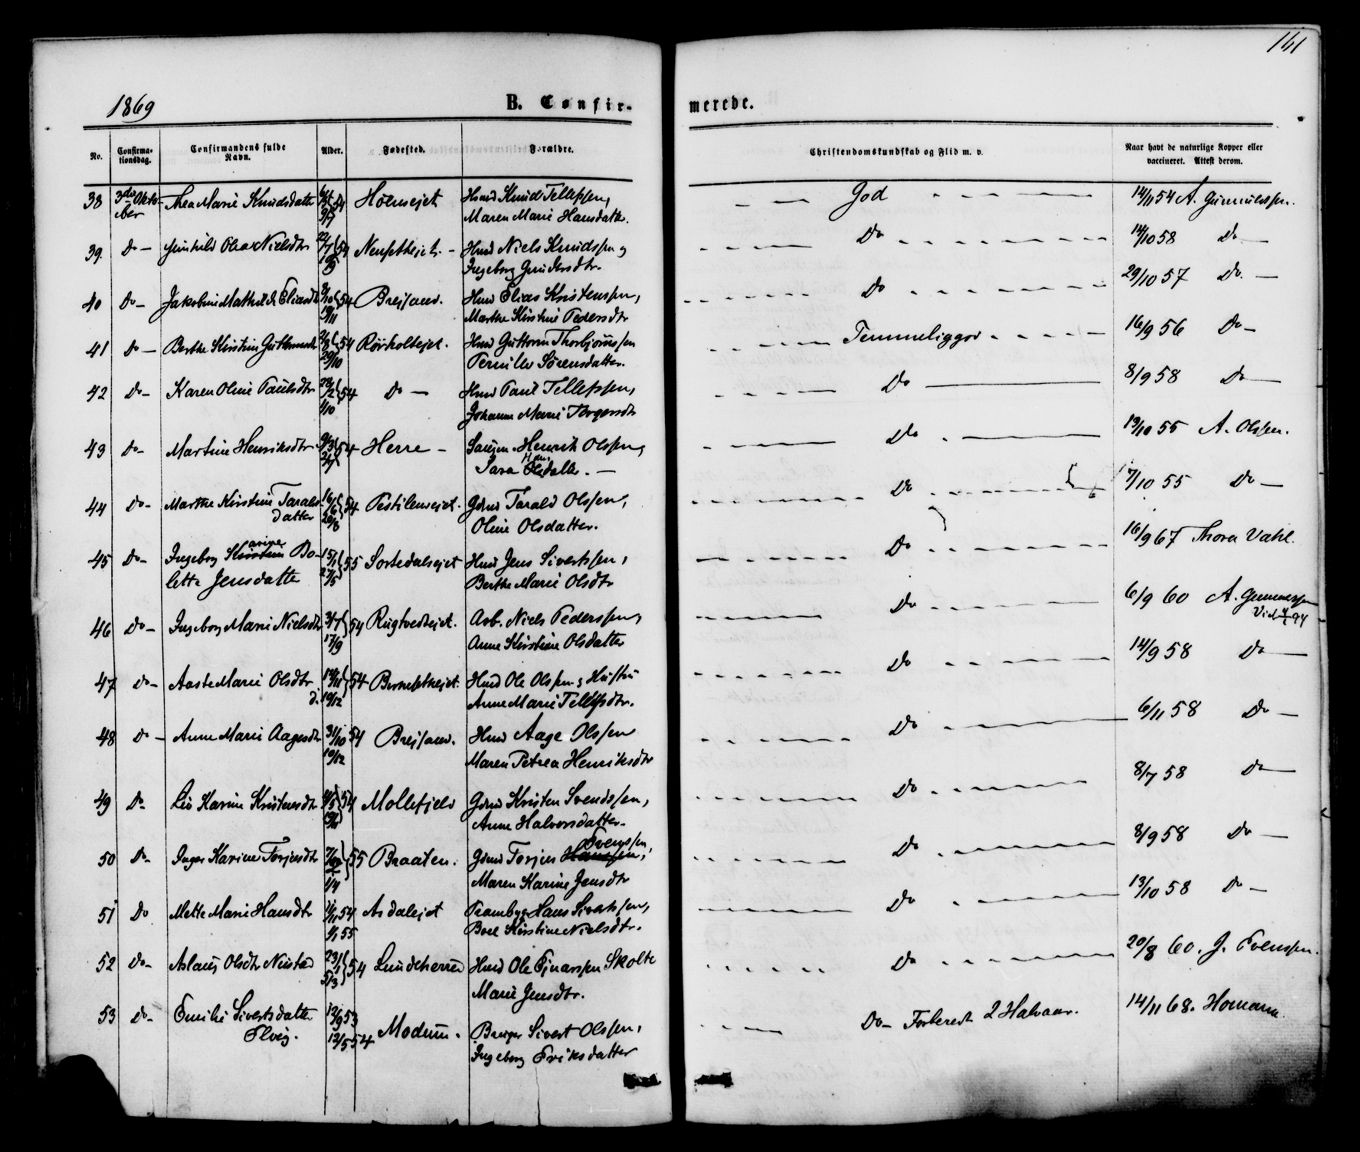 161
1869 B. Confirmerede.
No. Confirmationsdag. Confirmandens fulde Navn. Alder. Fødested. Forældre. Christendomskundskab og Flid m. v. Naar havt de naturlige Kopper eller vaccineret. Attest derom.
38 3die Oktober Thea Marie Knudsdatter 54 Holmsejet Husmd Knud Tellefsen, Maren Marie Hansdatter. God 14/11 54 A. Gunnulfsen.
39 Do Gunhild Olea Nielsdtr 54 Husmd Niels Knudsen og Ingeborg Gundersdtr. Do 14/10 58 Do
40 Do Jakobine Mathilde Eliasdtr 54 Husmd Elias Kristensen, Marthe Kirstine Pedersdtr Do 29/10 57 Do.
41 Do Berthe Kirstine Guttormsdtr 29/10 54 Rørholtejet. Husmd Guttorm Thorbjørnsen Pernille Sørensdatter. Temmeliggod 16/9 56 Do
42 Do Karen Oline Paulsdtr 54 Do Husmd Paul Tellefsen, Johanne Marie Torgersdtr Do 8/9 58 Do
43 Do Martine Henriksdtr 54 Herre Henrik Olsen, Sara Do 13/10 55 A. Olsen.
44 Do Marthe Kirstine Taraldsdatter 54 Pestilensejet. Gdmd Tarald Olsen, Oline Olsdatter. Do 7/10 55 Do
45 Do Ingeborg Karine Bolette Jensdatte 15/1 55 Sortedalsejet Husmd Jens Sivertsen, Berthe Marie Olsdtr. Do 16/9 67 Thora Vahl.
46 Do Ingeborg Marie Nielsdtr 17/9 54 Rugtvedtejet. Arb. Niels Pedersen, Anne Kirstine Olsdatter Do 6/9 60 A. Gunnersen
47 Do Aaste Marie Olsdtr 19/12 54 Husmd Ole Olsen, Hustru Anne Marie Tellefsdtr. Do 14/9 58 Do
48 Do Anne Marie Aagesdtr 31/10 54 10/12 Husmd Aage Olsen Maren Petrea Henriksdtr Do 6/11 58 Do
49 Do Liv Karine Kristensdtr 54 Mollefjeld Gdmd Kristen Svendsen, Anne Halvorsdatter. Do 8/7 58 Do
50 Do Inger Karine Torjersdtr 1/4 55 Braaten. Gdmd Torjer Evensen, Maren Karine Jensdtr Do 8/9 58 Do
51 Do Mette Marie Hansdtr 54 55 Aasdalejet Hans Sivertsen, Boel Kirstine Nielsdtr. Do 13/10 58 Do
52 Do Aslaug Olsdtr 5/3 54 Lundeherred Husmd Ole Marie Jensdtr. Do 20/8 60. J. Evensen.
53 Do Emilie Sivertsdatter Elvig 12/9 53 12/5 54 Modum. Sivert Olsen, Ingeborg Eriksdatter Do Forberedt 2 Halvaar. 14/11 68. Homann